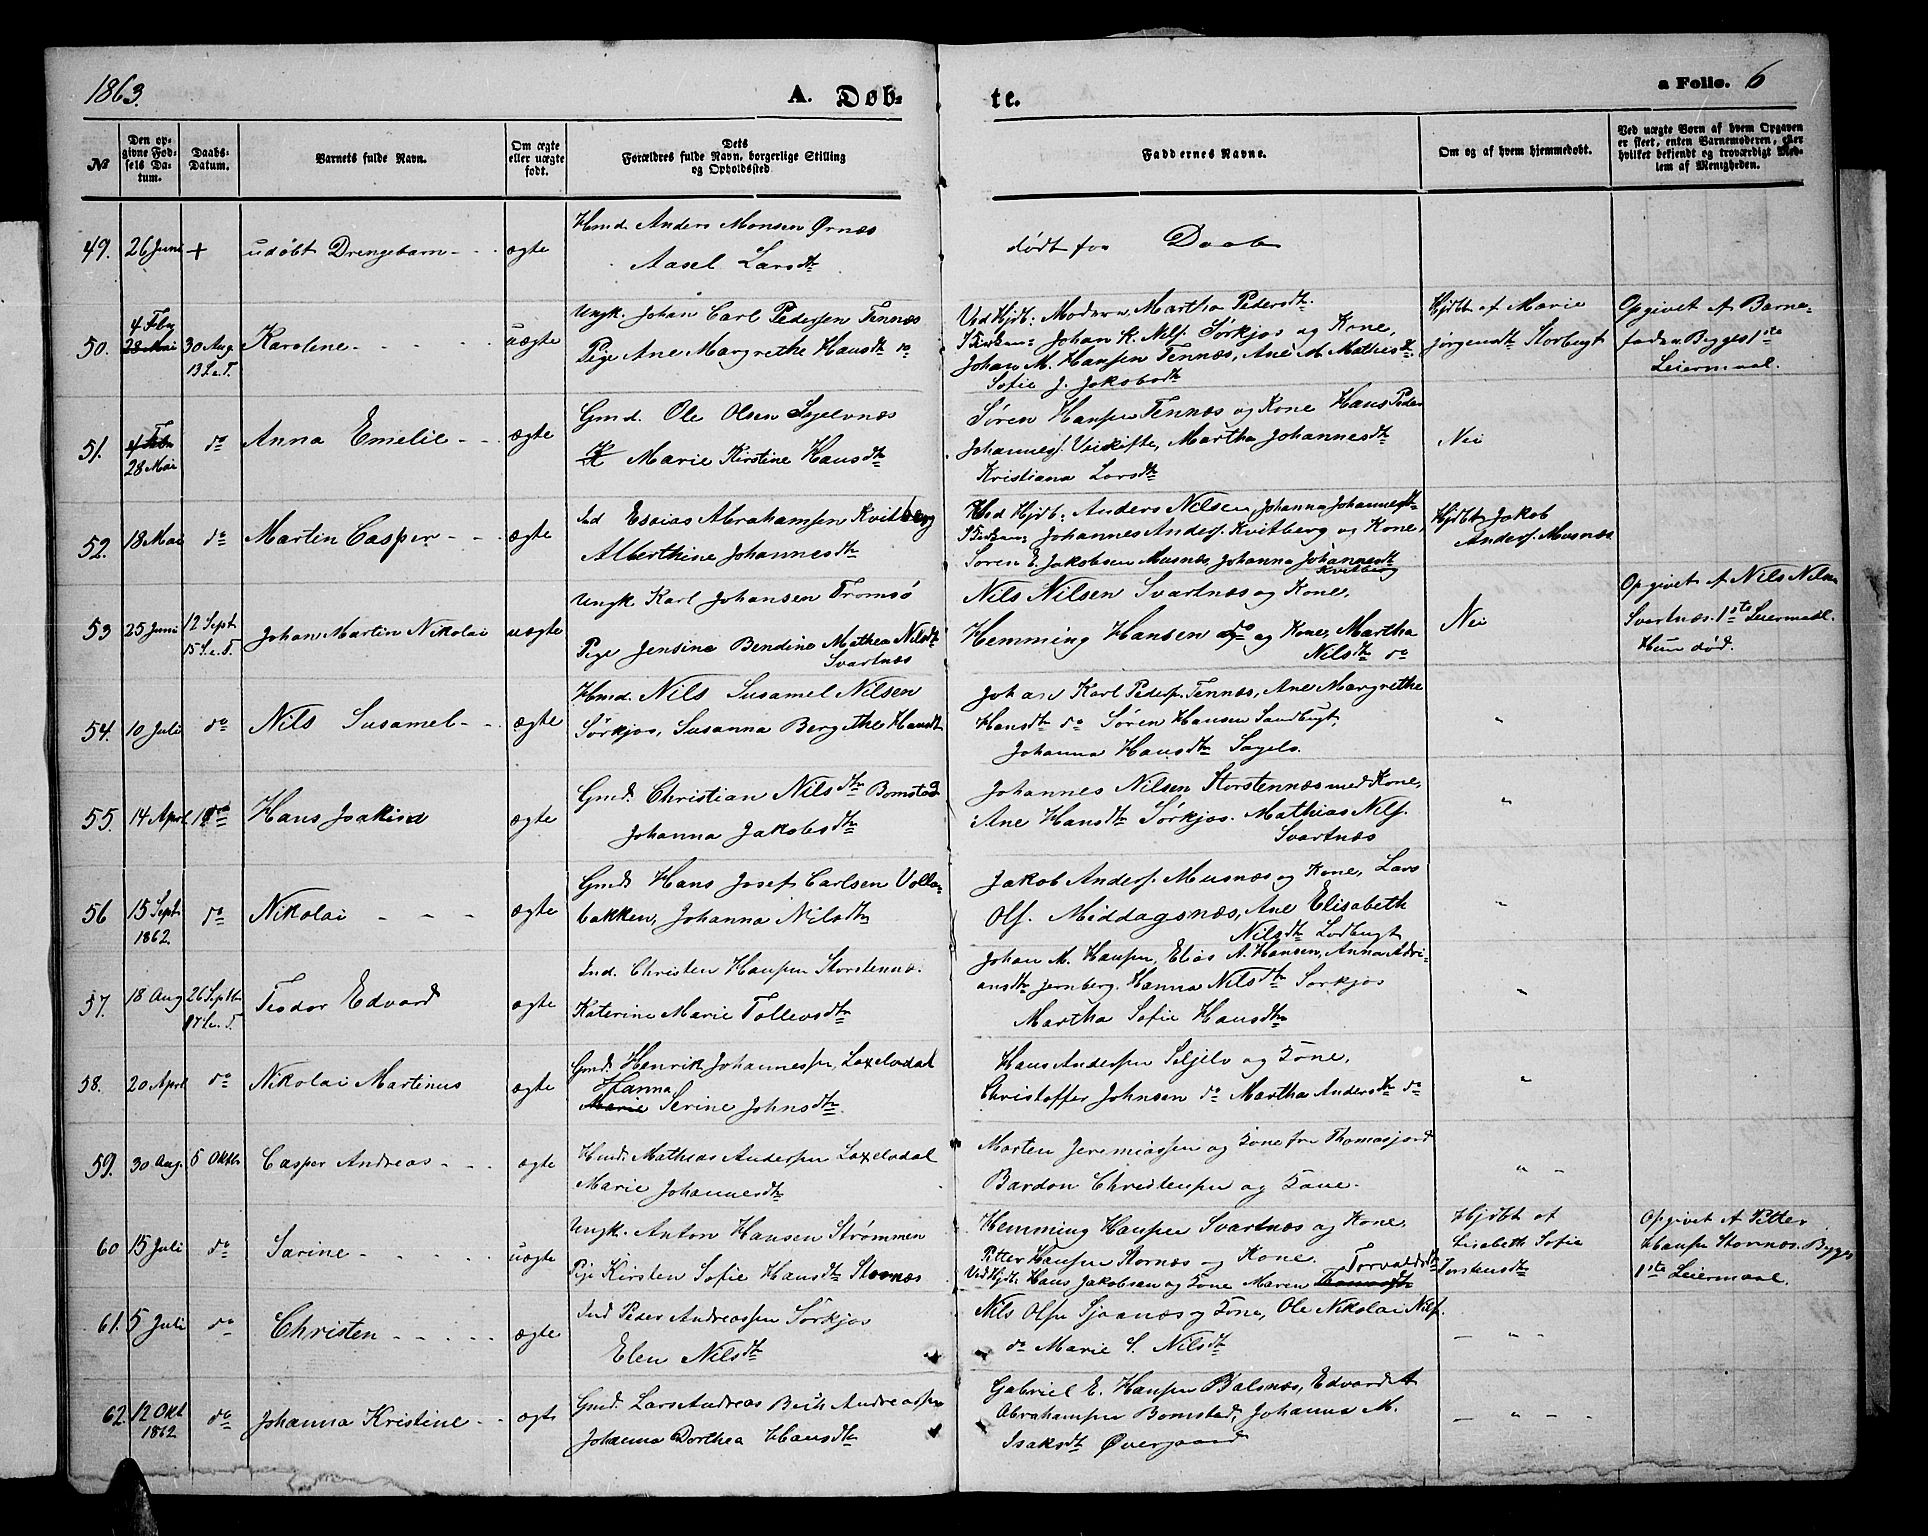 1863.
A. Døb-
te.
a Folio. 6
No
Den op-
givne Fød-
sels Da-
tum.
Daabs-
Datum.
Barnets fulde Navn.
Om ægte
eller uægte
født.
Dets
Forældres fulde Navn, borgerlige Stilling
og Opholdssted
Faddernes Navne.
Om og af hvem hjemmedøbt.
Ved uægte Børn af hvem Opgaven
er skeet, enten Barnemoderen, eller
hvilket bekjendt og troværdigt Med-
lem af Menigheden.
49. 26 Juni + udøbt Drengebarn - - ægte
Hmd. Anders Monsen Ørnæs
Aasel Larsdtr
dødt før Daab
50. 4 Feby 28 Mai 30 Aug. 13 S. e. T. Karoline - - - - uægte
Ungk. Johan Carl Pedersen Tennæs
Pige Ane Margrethe Hansdtr do
Ved Hjdb: Moderen, Martha Pedersdtr.
I Kirken: Johan K. Nilss. Sørkjos og Kone,
Johan M. Hanssen Tennæs, Ane M. Mathisdtr.
Sofie J. Jakobsdtr
Hjdbt af Marie
Jørgensdtr Storbugt
Opgivet af Barne-
faderen Begges 1ste
Leiermaal.
51. 4 Feb 28 Mai do Anna Emelie - - ægte
Gmd. Ole Olsen Sagelvnæs
K Marie Kirstine Hansdtr
Søren Hanssen Tennæs og Kone Hans Peder
Johannes. Vieskifte, Martha Johannesdtr
Kristiana Larsdtr
Nei
52. 18 Mai do Martin Casper - - - ægte
Ind Esaias Abrahamssen Kvitberg
Alberthine Johannesdtr
Ved Hjdb: Anders Nilsen, Johanna Johannesdtr
I Kirken: Johannes Anders. Kvitberg og Kone,
Søren E. Jakobsen Musnæs, Johanna Johannesdtr
Kvitberg
Hjdbt Jakob
Anders. Musnæs
53 25 Juni 12 Sept 15 S. e. T. Johan Martin Nikolai uægte
Ungk Karl Johansen Tromsø
Pige Jensine Bendine Mathea Nilsdtr
Svartnæs
Nils Nilsen Svartnæs og Kone,
Hemming Hansen do og Kone, Martha
Nilsdtr do
Nei
Opgivet af Nils Nilsen
Svartnæs. 1ste Leiermaal.
Hun død.
54. 10 Juli do Nils Susamel - - ægte
Hmd. Nils Susamel Nilsen
Sørkjos, Susanna Bergithe Hansdtr
Johan Karl Peders. Tennæs, Ane Margrethe
Hansdtr do Søren Hansen Sandbugt,
Johanna Hansdtr Sagelv.
"
55. 14 April do Hans Joakim ægte
Gmd. Christian Nilsdtr Bomstad
Johanna Jakobsdtr
Johannes Nilsen Storstennæs med Kone,
Ane Hansdtr Sørkjos. Mathias Nilss.
Svartnæs
"
56 15 Sept. 1862 do Nikolai - - - ægte
Gmd Hans Josef Carlsen Volla-
bakken, Johanna Nilsdtr
Jakob Anders. Musnæs og Kone, Lars
Ols. Middagsnæs, Ane Elisabeth
Nilsdtr Lodbugt
"
57. 18 Aug 26 Septbr 17 S. e. T. Teodor Edvard ægte
Ind. Christen Hanssen Storstennæs.
Katerine Marie Tollevsdtr
Johan M. Hanssen, Elias A. Hansen, Anna Adri-
ansdtr Jernberg. Hanna Nilsdtr Sørkjos
Martha Sofie Hansdtr
"
58. 20 April do Nikolai Martinus ægte
Gmd. Henrik Johannessen, Laxelvdal
Hanna
Marie Serine Johnsdtr
Hans Anderssen Seljelv og Kone,
Christoffer Johnsen do Martha Andersdtr do
"
59. 30 Aug. 5 Oktbr Casper Andreas - - - ægte
Hmd. Mathias Anderssen Laxelvdal
Marie Johannesdtr
Morten Jeremiassen og Kone fra Thomasjord
Bardon Christenssen og Kone.
" -
60 15 Juli do Sarine - - - - - uægte
Ungk. Anton Hansen Strømmen
Pige Kirsten Sofie Hansdtr Stornæs
Hemming Hanssen Svartnæs og Kone,
Petter Hanssen Stornæs og Kone. Torvaldsdtr
Ved Hjdb. Hans Jakobsen og Kone Maren
Hjdbt af
Lisabeth Sofie
Torstensdtr
Opgivet af Petter
Hanssen Stornæs. Begges
1ste Leiermaal.
61. 5 Juli do Christen - - - - - ægte
Ind Peder Andreassen Sørkjos
Elen Nilsdtr
Nils Olssen Sjøanæs og Kone, Ole Nikolai Nilss.
do Marie S. Nilsdtr
- " "
62 12 Okt 1862 do Johanna Kristine - - ægte
Gmd. Lars Andreas Berh Andreassen
Johanna Dorthea Hansdtr
Gabriel E. Hanssen Balsnæs, Edvard A
Abrahamssen Bomstad, Johanna M.
Isaksdtr Øvergaard
- " - -